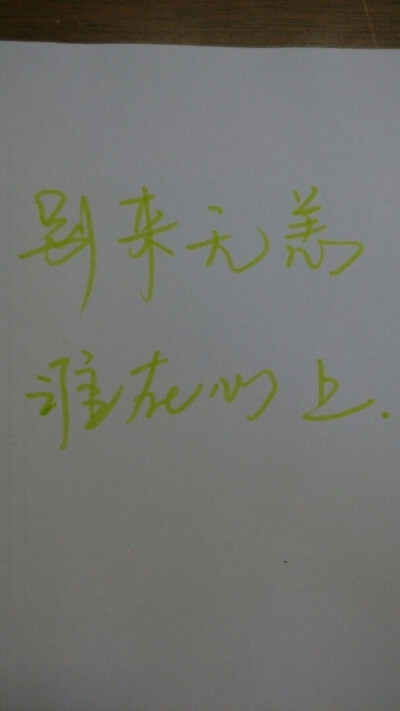 别来无恙
谁在心上.